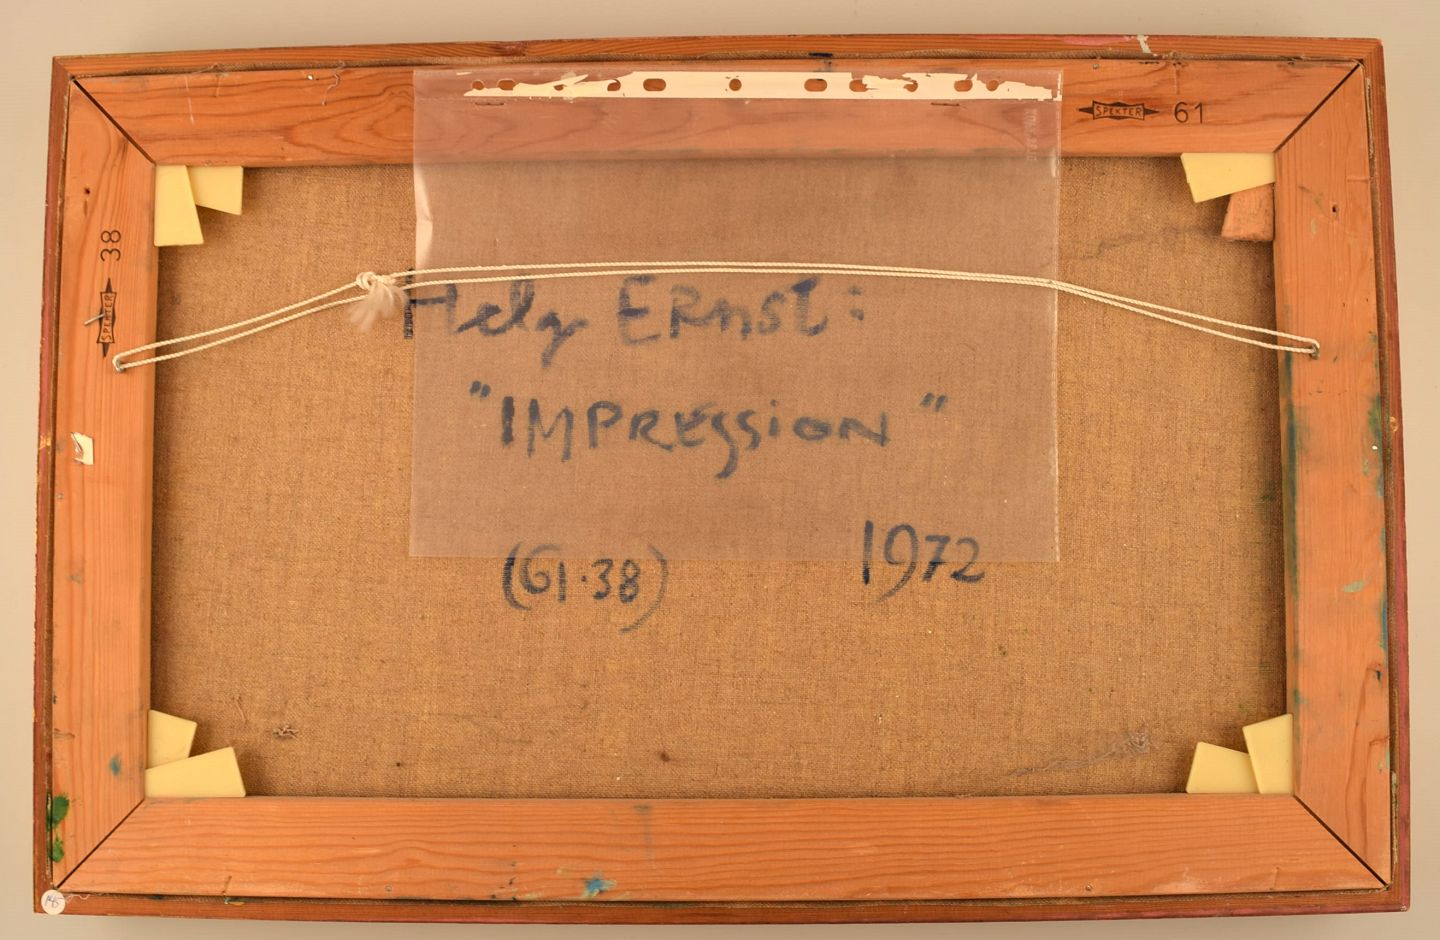 SPEKTER 61
38
SPEKTER
Helg ERNST:
"IMPRESSION"
(61·38) 1972
145